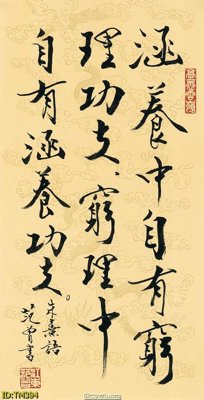 涵養中自有窮
理功夫、窮理中
自有涵養功夫。
朱熹語
范曾書
ID:TM394